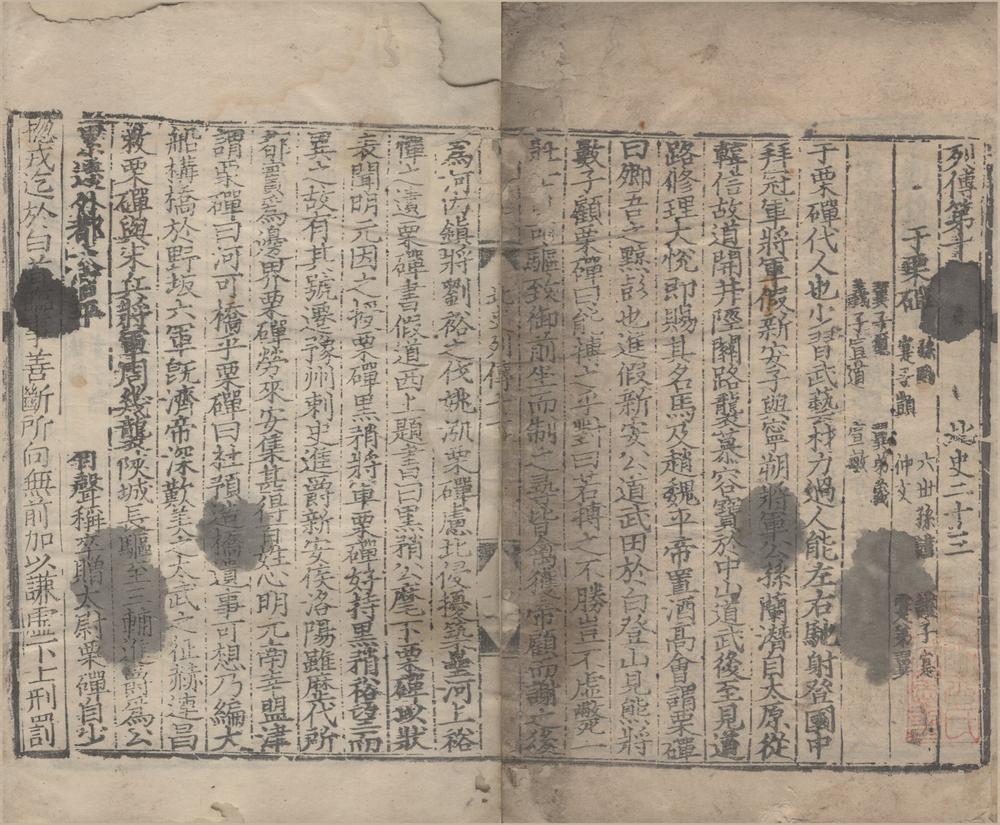 列傳第十 北史二十三
于栗磾 孫勁 六世孫謹 謹子寔
寔子顗 仲文 寔弟翼
翼子璽 翼弟義
義子宣道 宣敏
于栗磾代人也少習武藝材力過人能左右馳射登國中
拜冠軍將軍假新安子與寧朔將軍公孫蘭潛自太原從
韓信故道開井陘關路襲慕容寶於中山道武後至見道
路修理大悅即賜其名馬及趙魏平帝置酒高會謂栗磾
曰卿吾之黥彭也進假新安公道武田於白登山見熊將
數子顧栗磾曰能搏之乎對曰若搏之不勝豈不虛斃一
壯 驅致御前坐而制之尋皆禽獲帝顧而謝之後
爲河內鎮將劉裕之伐姚泓栗磾慮北侵擾築壘河上裕
憚之遺栗磾書假道西上題書曰黑矟公麾下栗磾以狀
表聞明元因之授栗磾黑矟將軍栗磾好持黑矟裕望而
異之故有其號遷豫州刺史進爵新安侯洛陽雖歷代所
都實爲邊界栗磾勞來安集甚得百姓心明元南幸盟津
謂栗磾曰河可橋乎栗磾曰杜預造橋遺事可想乃編大
船構橋於野坂六軍既濟帝深歎美之太武之征赫連昌
敕栗磾與宋兵將軍周幾襲陝城長驅至三輔進爵爲公
累遷外都大官平刑聲稱卒贈太尉栗磾自少
總戎迄於白首 善斷所向無前加以謙虛下士刑罰